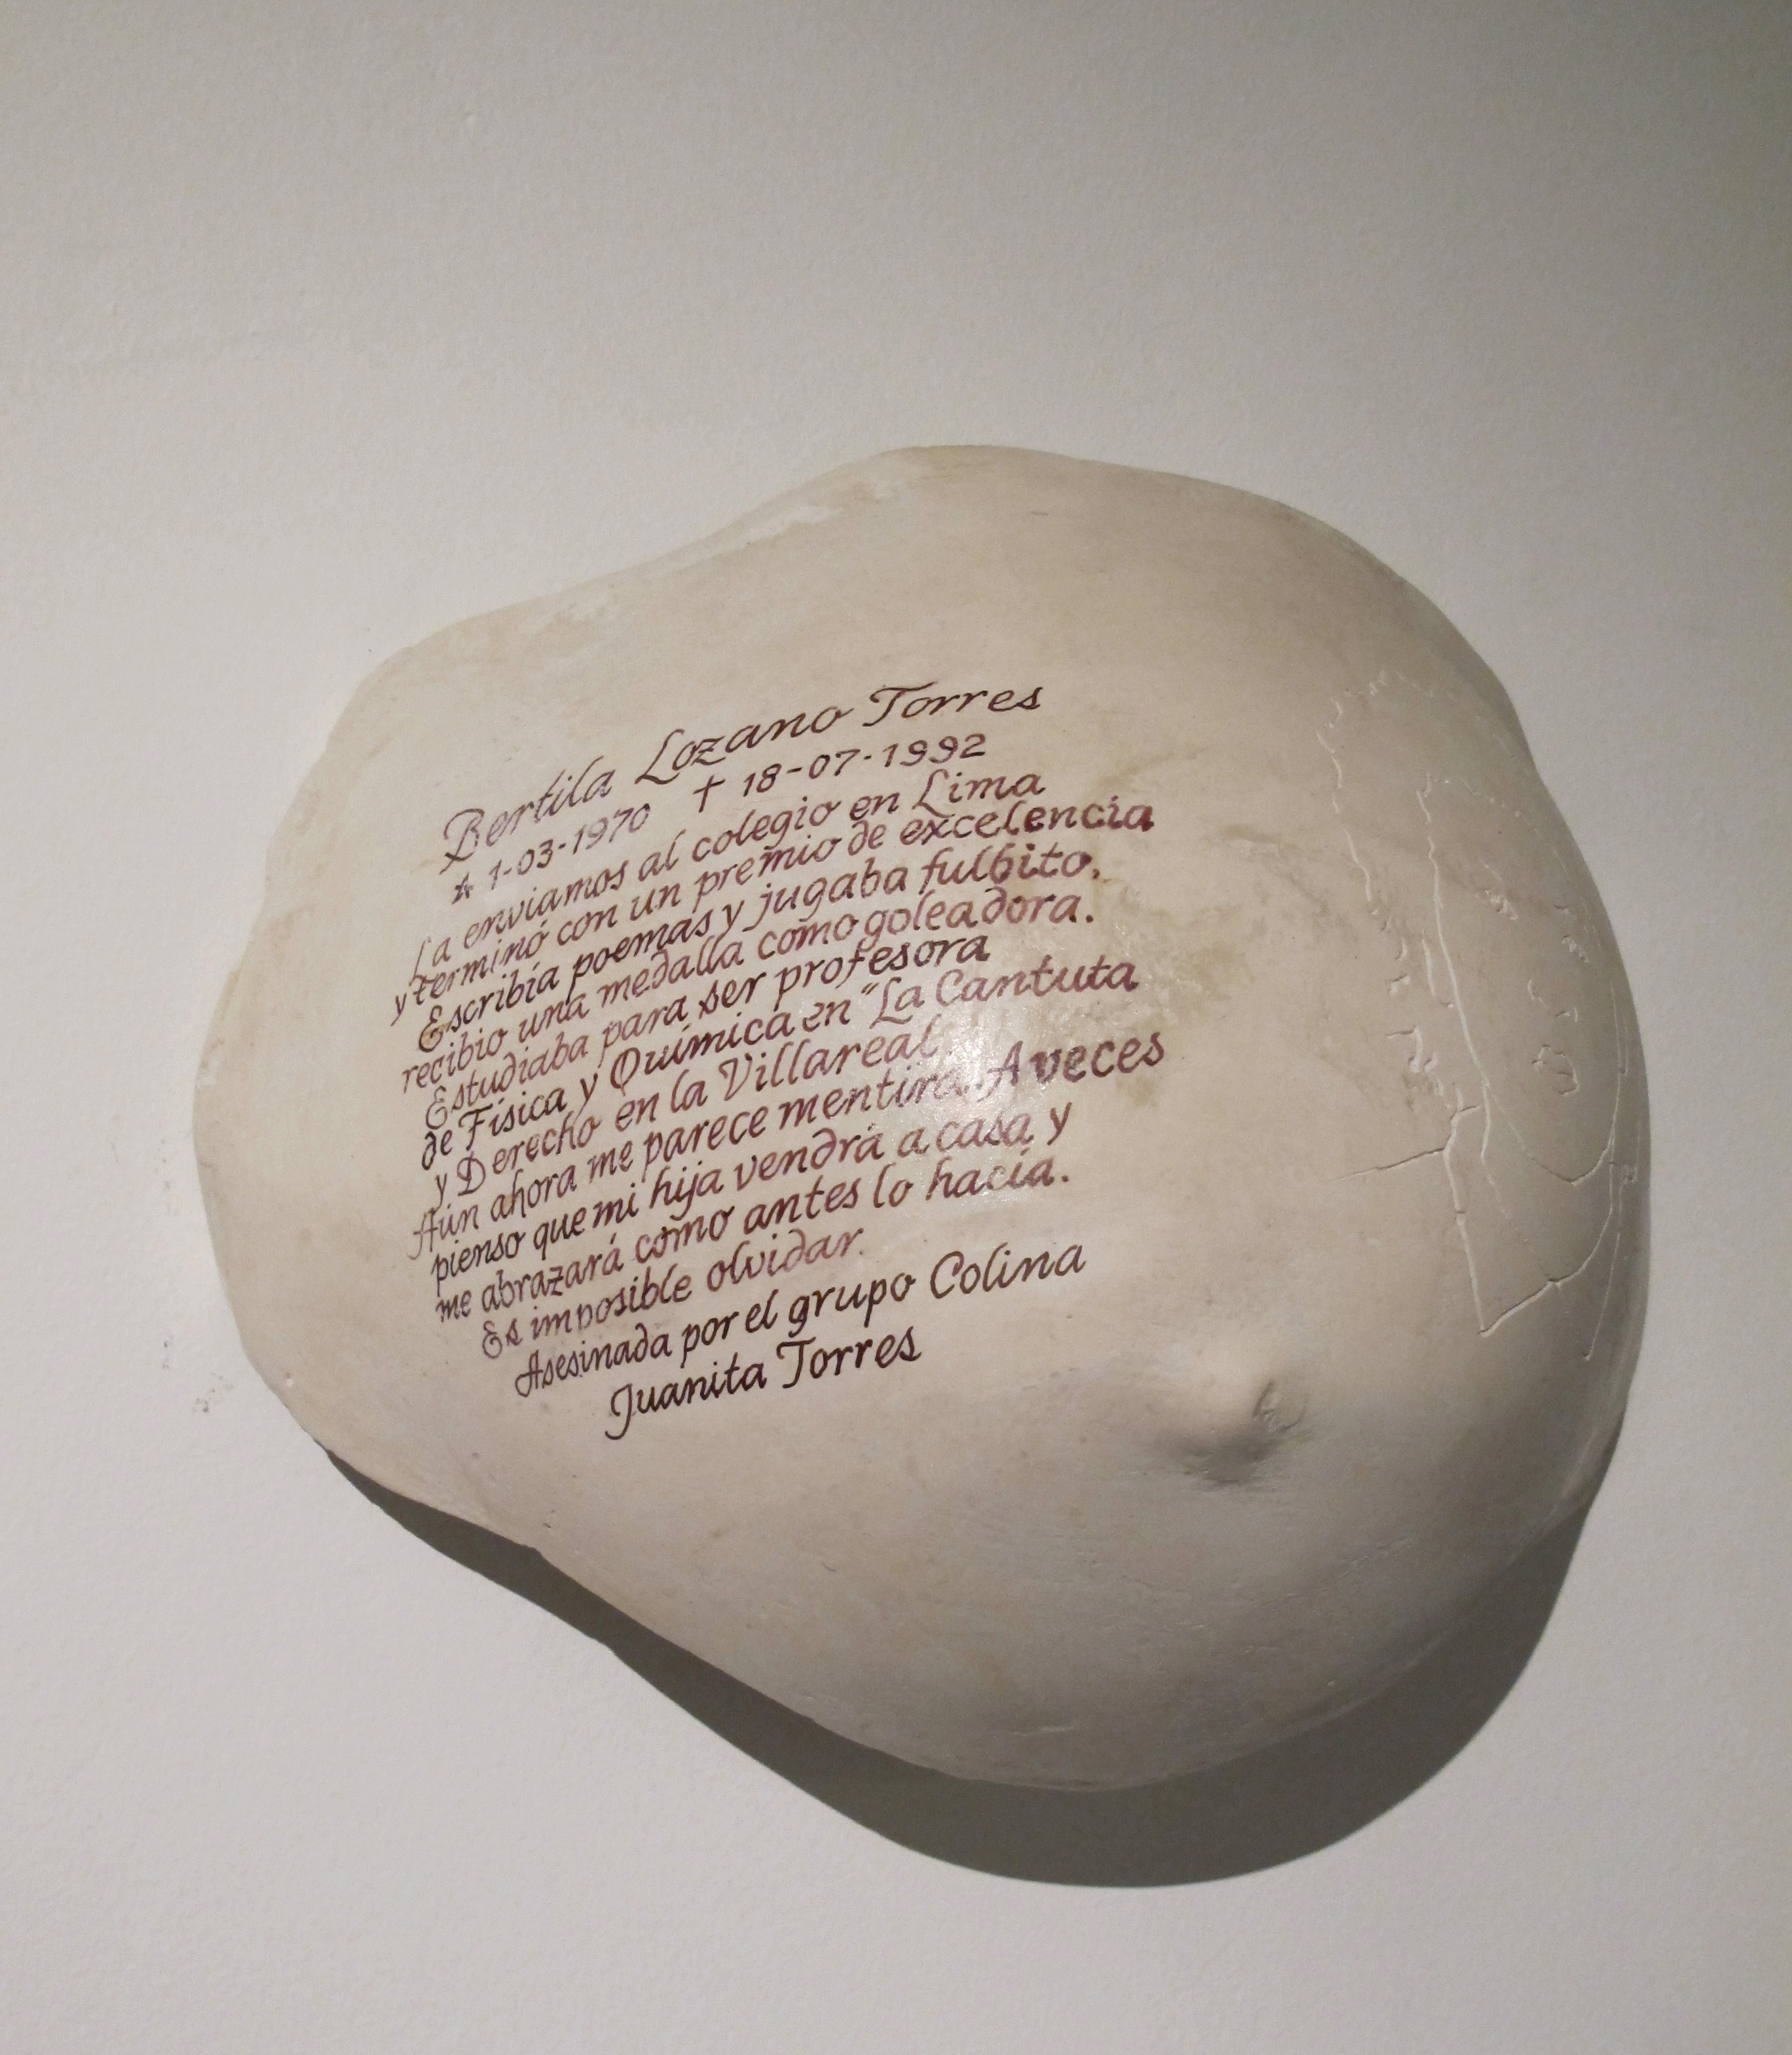 Bertila Lozano Torres
☆ 1-03-1970 † 18-07-1992
La enviamos al colegio en Lima
y terminó con un premio de excelencia
Escribía poemas y jugaba fulbito,
recibio una medalla como goleadora.
Estudiaba para ser profesora
de Física y Química en "La Cantuta
y Derecho en la Villareal
Aún ahora me parece mentira. A veces
pienso que mi hija vendrá a casa y
me abrazará como antes lo hacía.
Es imposible olvidar.
Asesinada por el grupo Colina
Juanita Torres